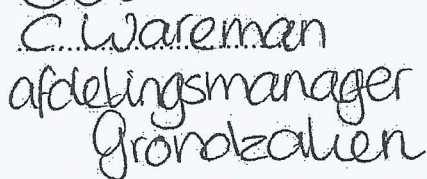 C. Wareman
afdelingsmanager
Grondzaken